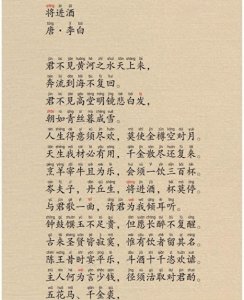 将进酒
唐·李白
君不见黄河之水天上来，
奔流到海不复回。
君不见高堂明镜悲白发，
朝如青丝暮成雪。
人生得意须尽欢，莫使金樽空对月。
天生我材必有用，千金散尽还复来。
烹羊宰牛且为乐，会须一饮三百杯。
岑夫子，丹丘生，将进酒，杯莫停。
与君歌一曲，请君为我倾耳听。
钟鼓馔玉不足贵，但愿长醉不复醒。
古来圣贤皆寂寞，惟有饮者留其名。
陈王昔时宴平乐，斗酒十千恣欢谑。
主人何为言少钱，径须沽取对君酌。
五花马，千金裘，